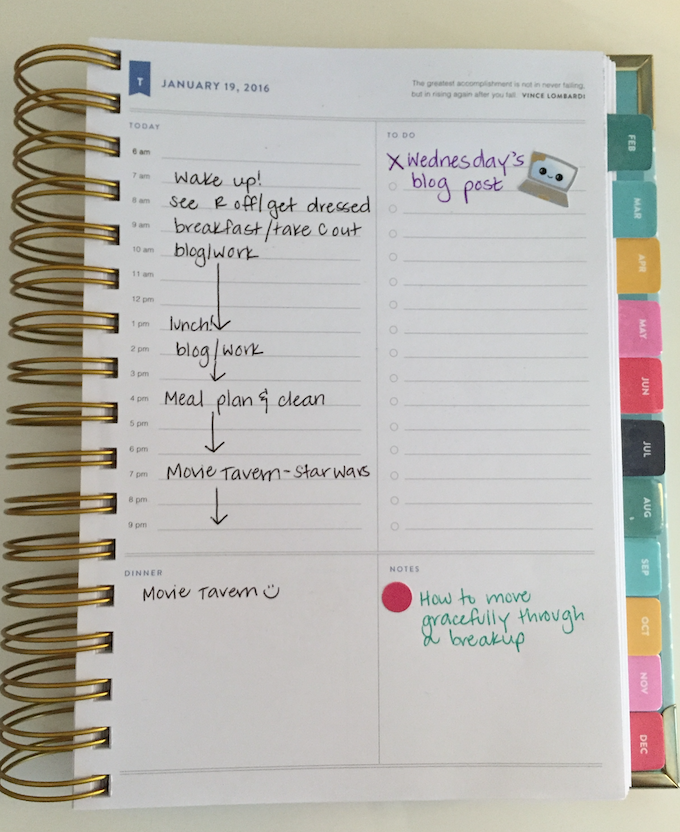 T JANUARY 19, 2016
The greatest accomplishment is not in never failing,
but in rising again after you fall. VINCE LOMBARDI
TODAY
6 am
7 am wake up!
8 am see R off/get dressed
9 am breakfast/take C out
10 am blog/work
11 am
12 pm
1 pm lunch!
2 pm blog/work
3 pm
4 pm Meal plan & clean
5 pm
6 pm
7 pm Movie Tavern - Star Wars
8 pm
9 pm
TO DO
X Wednesday's
blog post
DINNER
Movie Tavern
NOTES
How to move
gracefully through
a breakup
FEB
MAR
APR
MAY
JUN
JUL
AUG
SEP
OCT
NOV
DEC